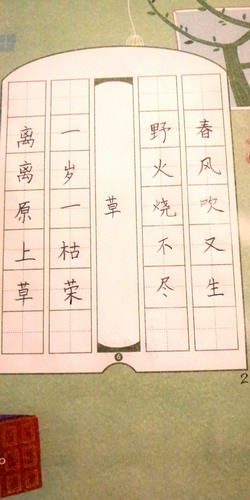 离离原上草
一岁一枯荣
草
野火烧不尽
春风吹又生
6
2